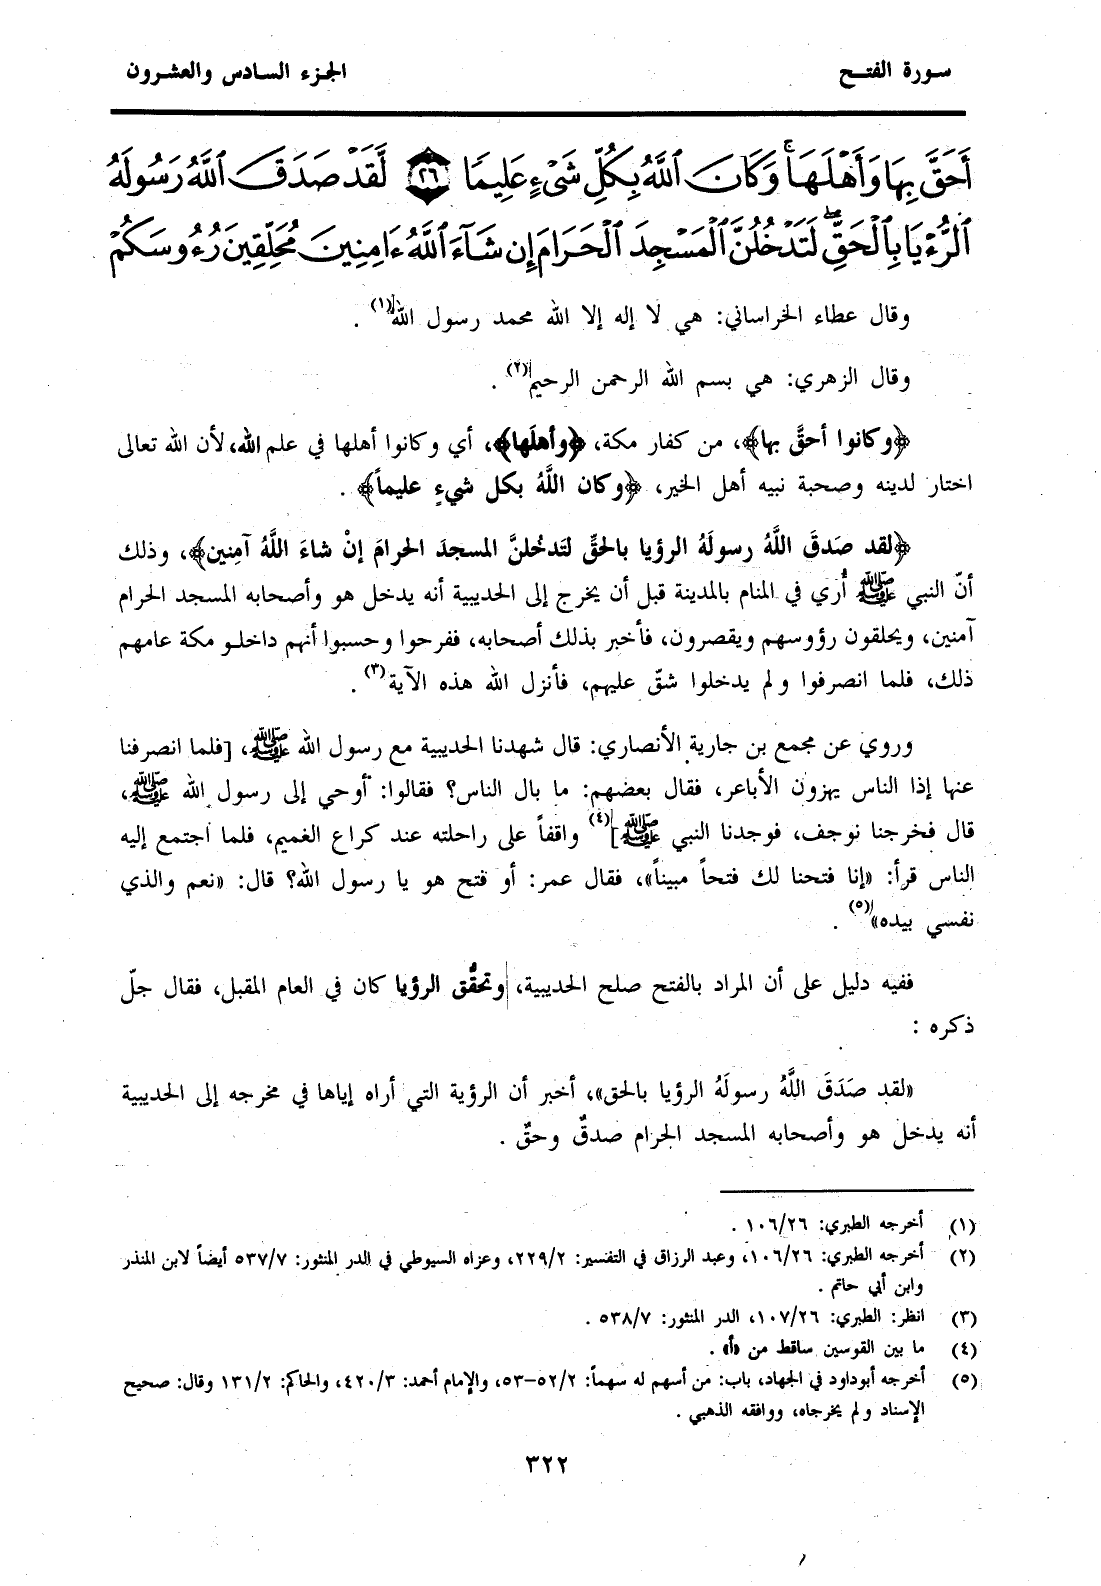 سورة الفتح
الجزء السادس والعشرون
أَحَقَّ بِهَا وَأَهْلَهَا ۚ وَكَانَ ٱللَّهُ بِكُلِّ شَىْءٍ عَلِيمًا ٢٦ لَّقَدْ صَدَقَ ٱللَّهُ رَسُولَهُ
ٱلرُّءْيَا بِٱلْحَقِّ ۖ لَتَدْخُلُنَّ ٱلْمَسْجِدَ ٱلْحَرَامَ إِن شَآءَ ٱللَّهُ ءَامِنِينَ مُحَلِّقِينَ رُءُوسَكُمْ
وقال عطاء الخراساني: هي لا إله إلا الله محمد رسول الله(١) .
وقال الزهري: هي بسم الله الرحمن الرحيم(٢) .
﴿وكانوا أحقَّ بها﴾، من كفار مكة، ﴿وأهلَها﴾، أي وكانوا أهلها في علم الله، لأن الله تعالى
اختار لدينه وصحبة نبيه أهل الخير، ﴿وكان اللَّهُ بكل شيءٍ عليماً﴾ .
﴿لقد صدقَ اللَّهُ رسولَهُ الرؤيا بالحقِّ لتَدخُلنَّ المسجدَ الحرامَ إنْ شاءَ اللَّهُ آمنين﴾، وذلك
أنّ النبي ﷺ أُري في المنام بالمدينة قبل أن يخرج إلى الحديبية أنه يدخل هو وأصحابه المسجد الحرام
آمنين، ويحلقون رؤوسهم ويقصرون، فأخبر بذلك أصحابه، ففرحوا وحسبوا أنهم داخلو مكة عامهم
ذلك، فلما انصرفوا ولم يدخلوا شقّ عليهم، فأنزل الله هذه الآية(٣) .
وروي عن مجمع بن جارية الأنصاري: قال شهدنا الحديبية مع رسول الله ﷺ، [فلما انصرفنا
عنها إذا الناس يهزون الأباعر، فقال بعضهم: ما بال الناس؟ فقالوا: أوحي إلى رسول الله ﷺ،
قال فخرجنا نوجف، فوجدنا النبي ﷺ](٤) واقفاً على راحلته عند كراع الغميم، فلما اجتمع إليه
الناس قرأ: «إنا فتحنا لك فتحاً مبيناً»، فقال عمر: أو فتح هو يا رسول الله؟ قال: «نعم والذي
نفسي بيده»(٥) .
ففيه دليل على أن المراد بالفتح صلح الحديبية، وتحقُّق الرؤيا كان في العام المقبل، فقال جلّ
ذكره :
«لقد صَدَقَ اللَّهُ رسولَهُ الرؤيا بالحق»، أخبر أن الرؤية التي أراه إياها في مخرجه إلى الحديبية
أنه يدخل هو وأصحابه المسجد الحرام صدقٌ وحقٌ .
(١) أخرجه الطبري: ١٠٦/٢٦ .
(٢) أخرجه الطبري: ١٠٦/٢٦، وعبد الرزاق في التفسير: ٢٢٩/٢، وعزاه السيوطي في الدر المنثور: ٥٣٧/٧ أيضاً لابن المنذر
وابن أبي حاتم .
(٣) انظر: الطبري: ١٠٧/٢٦، الدر المنثور: ٥٣٨/٧ .
(٤) ما بين القوسين ساقط من «أ» .
(٥) أخرجه أبوداود في الجهاد، باب: من أسهم له سهماً: ٥٢/٢-٥٣، والإمام أحمد: ٤٢٠/٣، والحاكم: ١٣١/٢ وقال: صحيح
الإسناد ولم يخرجاه، ووافقه الذهبي .
٣٢٢